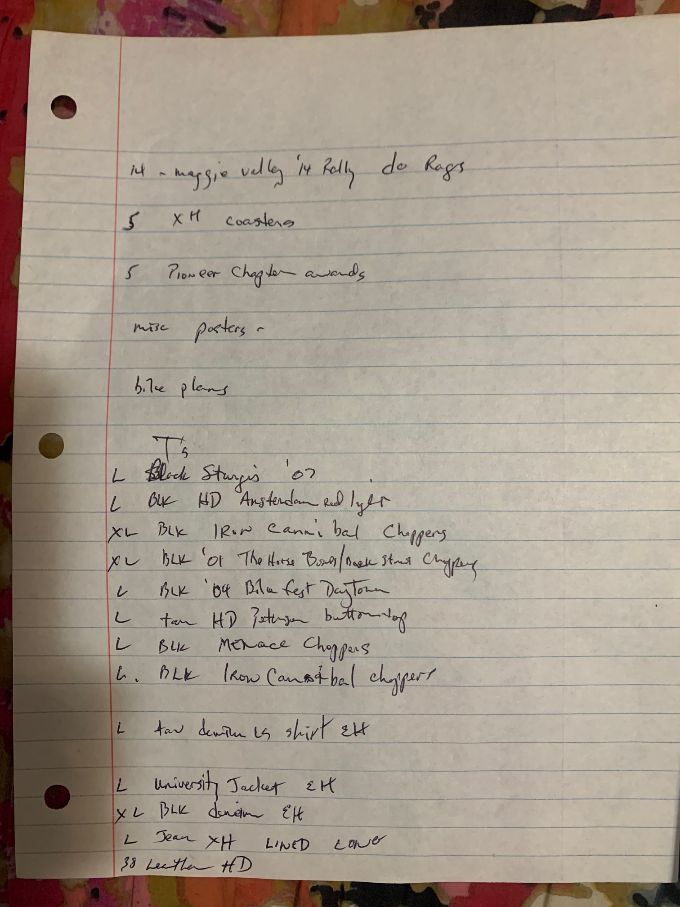 14 - maggie valley '14 Rally do Rags
5 XH coasters
5 Pioneer Chapter awards
misc posters -
bike plans
T's
L Black Sturgis '07
L BLK HD Amsterdam red light
XL BLK IRON Cannibal Choppers
XL BLK '01 The Horse Bones/Back Street Choppers
L BLK '04 Bike fest Daytona
L tan HD button top
L BLK MENACE Choppers
L. BLK Iron Cannibal choppers
L tan denim LS shirt EH
L University Jacket EH
XL BLK denim EH
L Jean XH LINED
38 Leather HD